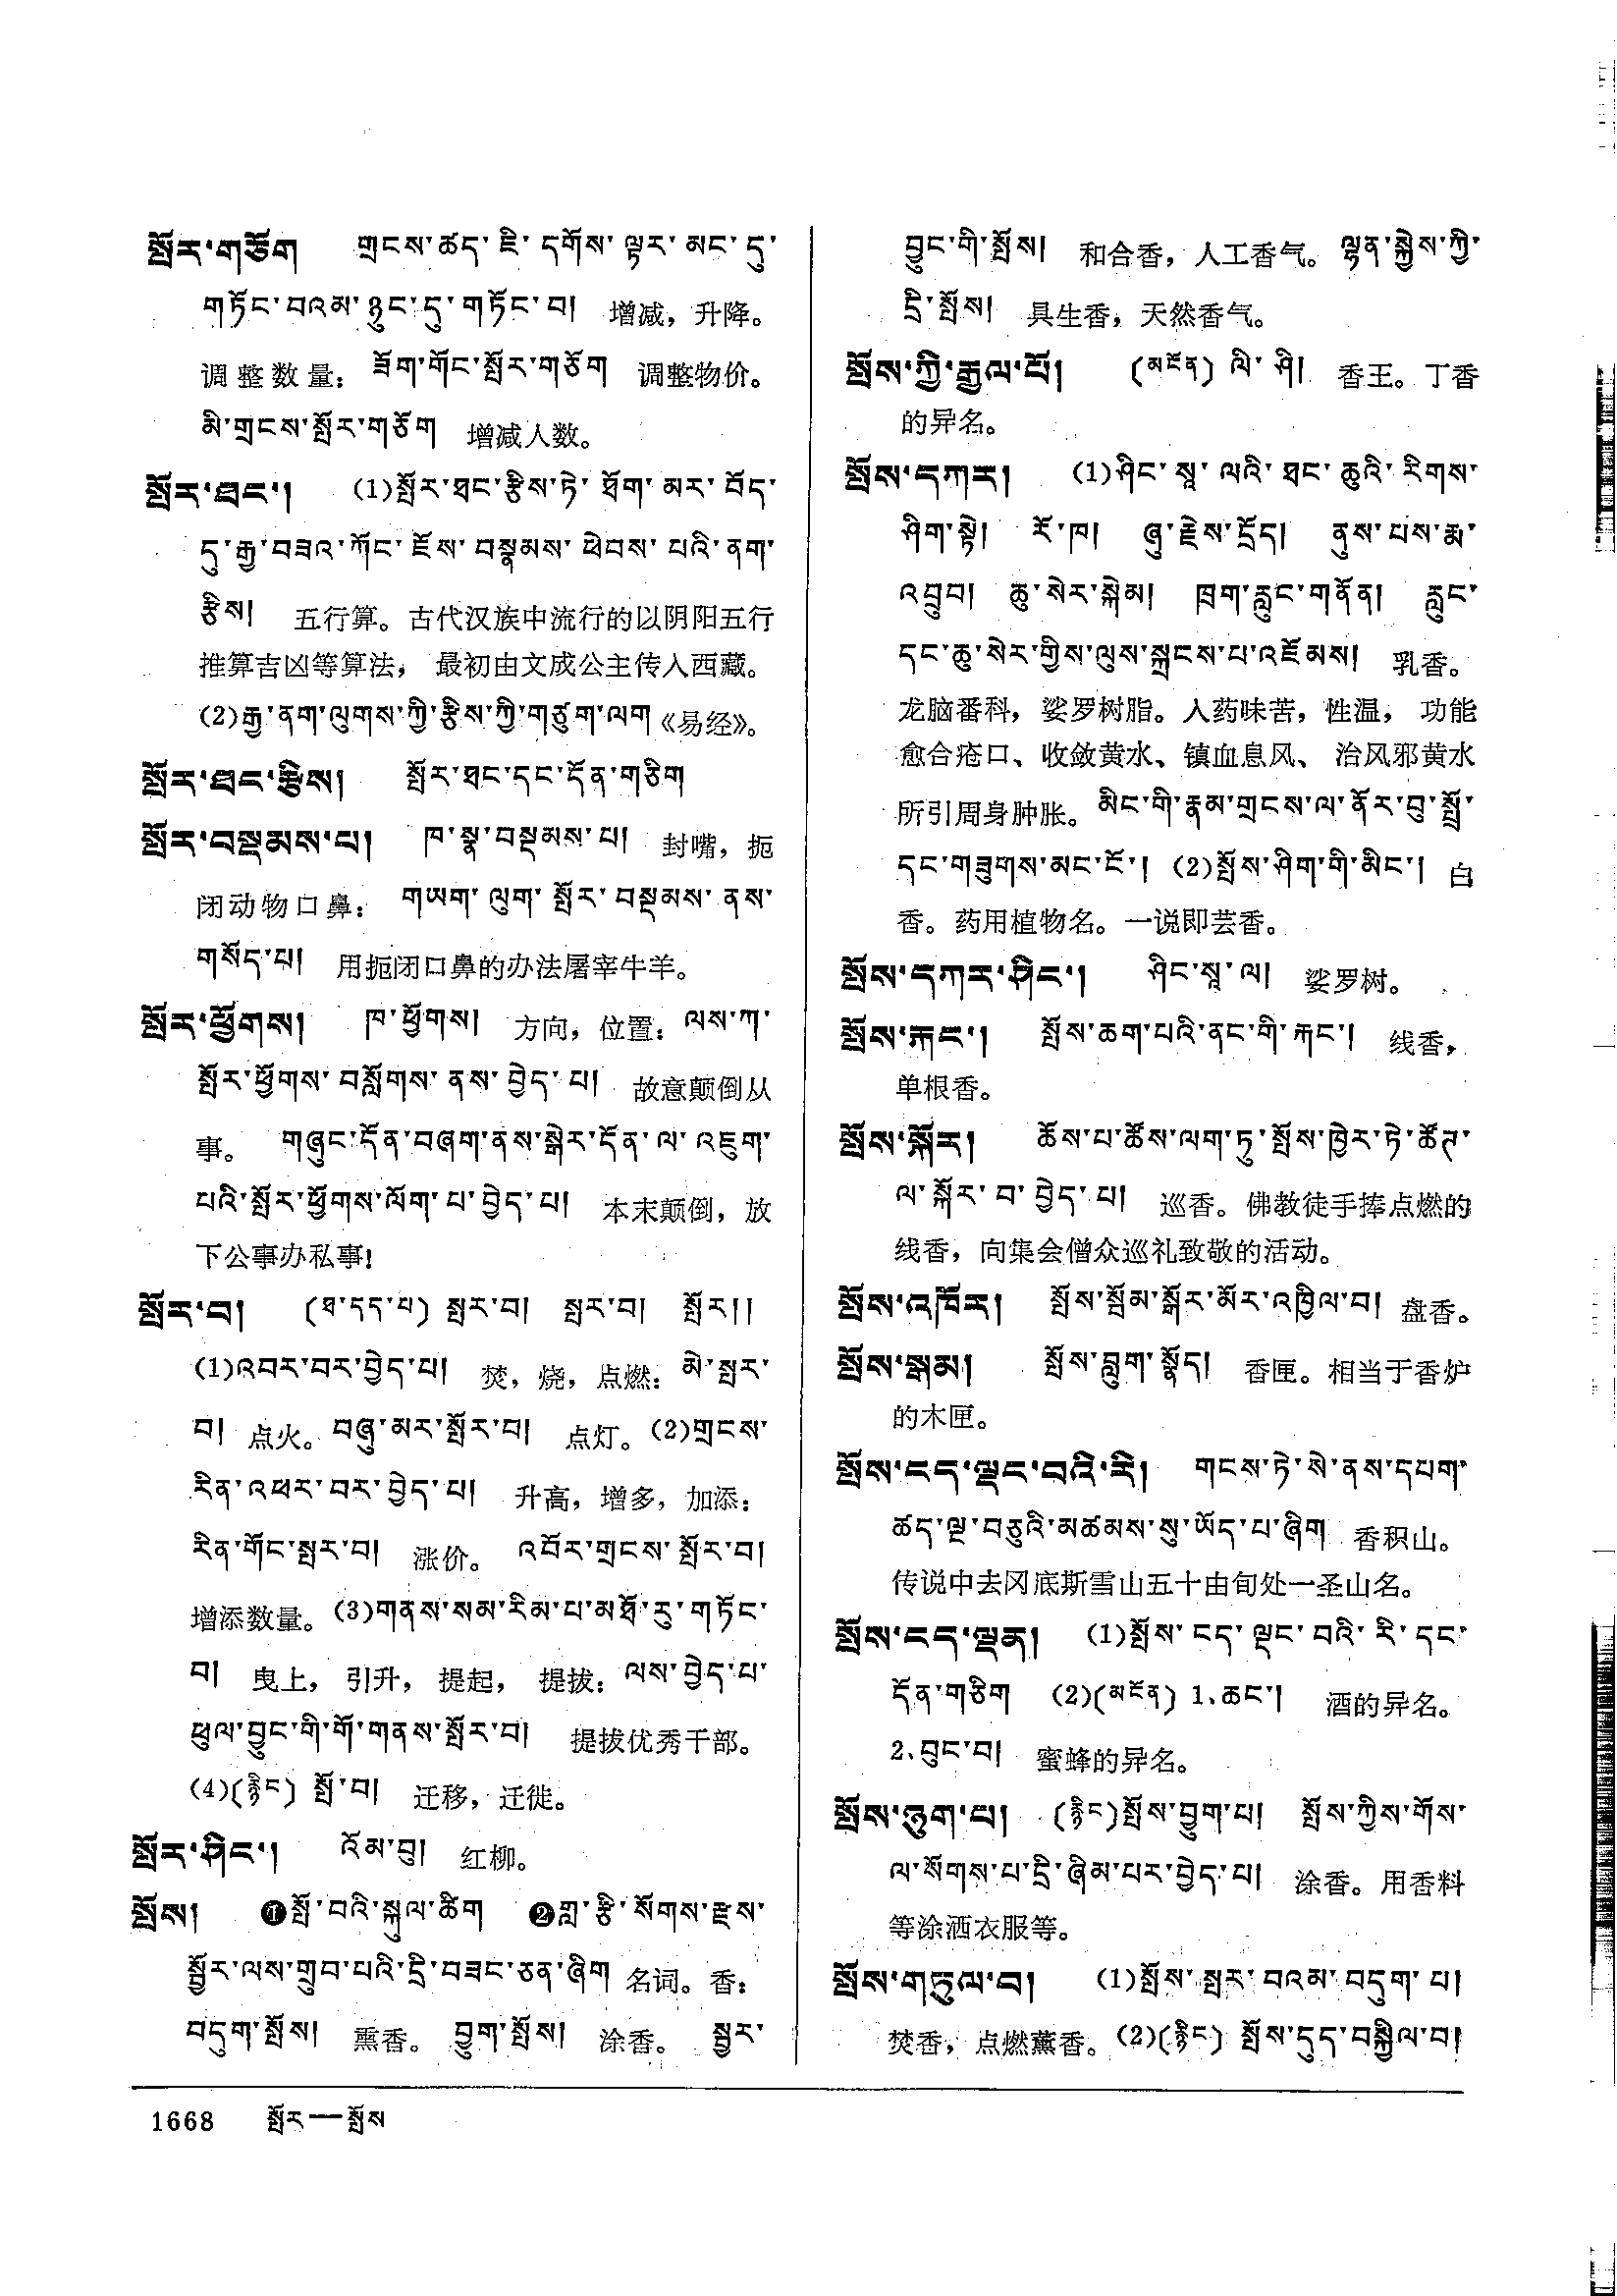 སྤོར་གཙོག གྲངས་ཚད་ཇི་དགོས་ལྟར་མང་དུ་
གཏོང་བའམ་ཉུང་དུ་གཏོང་བ། 增减，升降。
调整数量：ཟོག་གོང་སྤོར་གཙོག 调整物价。
མི་གྲངས་སྤོར་གཙོག 增减人数。
སྤོར་ཐང་། (1)སྤོར་ཐང་རྩིས་ཏེ་ཐོག་མར་བོད་
དུ་རྒྱ་བཟའ་ཀོང་ཇོས་བསྣམས་ཕེབས་པའི་ནག་
རྩིས། 五行算。古代汉族中流行的以阴阳五行
推算吉凶等算法，最初由文成公主传入西藏。
(2)རྒྱ་ནག་ལུགས་ཀྱི་རྩིས་ཀྱི་གཙུག་ལག《易经》。
སྤོར་ཐང་རྩིས། སྤོར་ཐང་དང་དོན་གཅིག
སྤོར་བསྡམས་པ། ཁ་སྣ་བསྡམས་པ། 封嘴，扼
闭动物口鼻：གཡག་ལུག་སྤོར་བསྡམས་ནས་
གསོད་པ། 用扼闭口鼻的办法屠宰牛羊。
སྤོར་ཕྱོགས། ཁ་ཕྱོགས། 方向，位置：ལས་ཀ་
སྤོར་ཕྱོགས་བསློགས་ནས་བྱེད་པ། 故意颠倒从
事。 གཞུང་དོན་བཞག་ནས་སྒེར་དོན་ལ་འཇུག་
པའི་སྤོར་ཕྱོགས་ལོག་པ་བྱེད་པ། 本末颠倒，放
下公事办私事！
སྤོར་བ། (ཐ་དད་པ) སྤར་བ། སྤར་བ། སྤོར།།
(1)འབར་བར་བྱེད་པ། 焚，烧，点燃：མེ་སྤར་
བ། 点火。བཞུ་མར་སྤོར་བ། 点灯。(2)གྲངས་
རིན་འཕར་བར་བྱེད་པ། 升高，增多，加添：
རིན་གོང་སྤར་བ། 涨价。 འབོར་གྲངས་སྤོར་བ།
增添数量。(3)གནས་སམ་རིམ་པ་མཐོ་རུ་གཏོང་
བ། 曳上，引升，提起，提拔：ལས་བྱེད་པ་
ཕུལ་བྱུང་གི་གོ་གནས་སྤོར་བ། 提拔优秀干部。
(4)(རྙིང) སྤོ་བ། 迁移，迁徙。
སྤོར་ཤིང་། འོམ་བུ། 红柳。
སྤོས། ❶སྤོ་བའི་སྐུལ་ཚིག ❷ཀླ་རྩི་སོགས་རྫས་
སྦྱོར་ལས་གྲུབ་པའི་དྲི་བཟང་ཅན་ཞིག 名词。香：
བདུག་སྤོས། 熏香。 བྱུག་སྤོས། 涂香。 སྦྱར་
བྱུང་གི་སྤོས། 和合香，人工香气。ལྷན་སྐྱེས་ཀྱི་
དྲི་སྤོས། 具生香，天然香气。
སྤོས་ཀྱི་རྒྱལ་པོ། (མངོན) ལི་ཤི། 香王。丁香
的异名。
སྤོས་དཀར། (1)ཤིང་སཱ་ལའི་ཐང་ཆུའི་རིགས་
ཤིག་སྟེ། རོ་ཁ། ཞུ་རྗེས་དྲོད། ནུས་པས་རྨ་
འབྲུབ། ཆུ་སེར་སྐེམ། ཁྲག་རླུང་གནོན། རླུང་
དང་ཆུ་སེར་གྱིས་ལུས་སྐྲངས་པ་འཇོམས། 乳香。
龙脑番科，娑罗树脂。入药味苦，性温，功能
愈合疮口、收敛黄水、镇血息风、治风邪黄水
所引周身肿胀。མིང་གི་རྣམ་གྲངས་ལ་ནོར་བུ་སྤྲོ་
དང་གཟུགས་མང་ངོ་། (2)སྤོས་ཤིག་གི་མིང་། 白
香。药用植物名。一说即芸香。
སྤོས་དཀར་ཤིང་། ཤིང་སཱ་ལ། 娑罗树。
སྤོས་རྐང་། སྤོས་ཆག་པའི་ནང་གི་རྐང་། 线香，
单根香。
སྤོས་སྐོར། ཆོས་པ་ཚོས་ལག་ཏུ་སྤོས་ཁྱེར་ཏེ་ཚོཊ་
ལ་སྐོར་བ་བྱེད་པ། 巡香。佛教徒手捧点燃的
线香，向集会僧众巡礼致敬的活动。
སྤོས་འཁོར། སྤོས་སྡོམ་སྒོར་མོར་འཁྱིལ་བ། 盘香。
སྤོས་སྒམ། སྤོས་བླུག་སྣོད། 香匣。相当于香炉
的木匣。
སྤོས་ངད་ལྡང་བའི་རི། གངས་ཏེ་སེ་ནས་དཔག་
ཚད་ལྔ་བཅུའི་མཚམས་སུ་ཡོད་པ་ཞིག 香积山。
传说中去冈底斯雪山五十由旬处一圣山名。
སྤོས་ངད་ལྡན། (1)སྤོས་ངད་ལྡང་བའི་རི་དང་
དོན་གཅིག (2)(མངོན) 1.ཆང་། 酒的异名。
2.བུང་བ། 蜜蜂的异名。
སྤོས་ཉུག་པ། (རྙིང)སྤོས་བྱུག་པ། སྤོས་ཀྱིས་གོས་
ལ་སོགས་པ་དྲི་ཞིམ་པར་བྱེད་པ། 涂香。用香料
等涂洒衣服等。
སྤོས་གཏུལ་བ། (1)སྤོས་སྤར་བའམ་བདུག་པ།
焚香，点燃薰香。(2)(རྙིང) སྤོས་དུད་བསྐྱིལ་བ།
1668 སྤོར—སྤོས